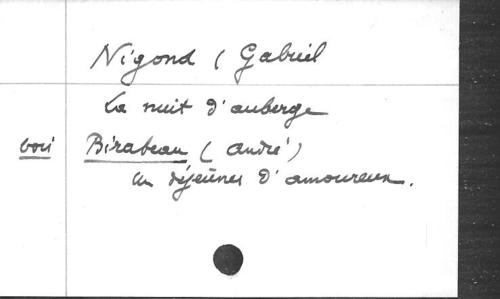 Nigond ( Gabriel
La nuit d'auberge
voir Birabeau ( André )
un déjeuner d'amoureux.